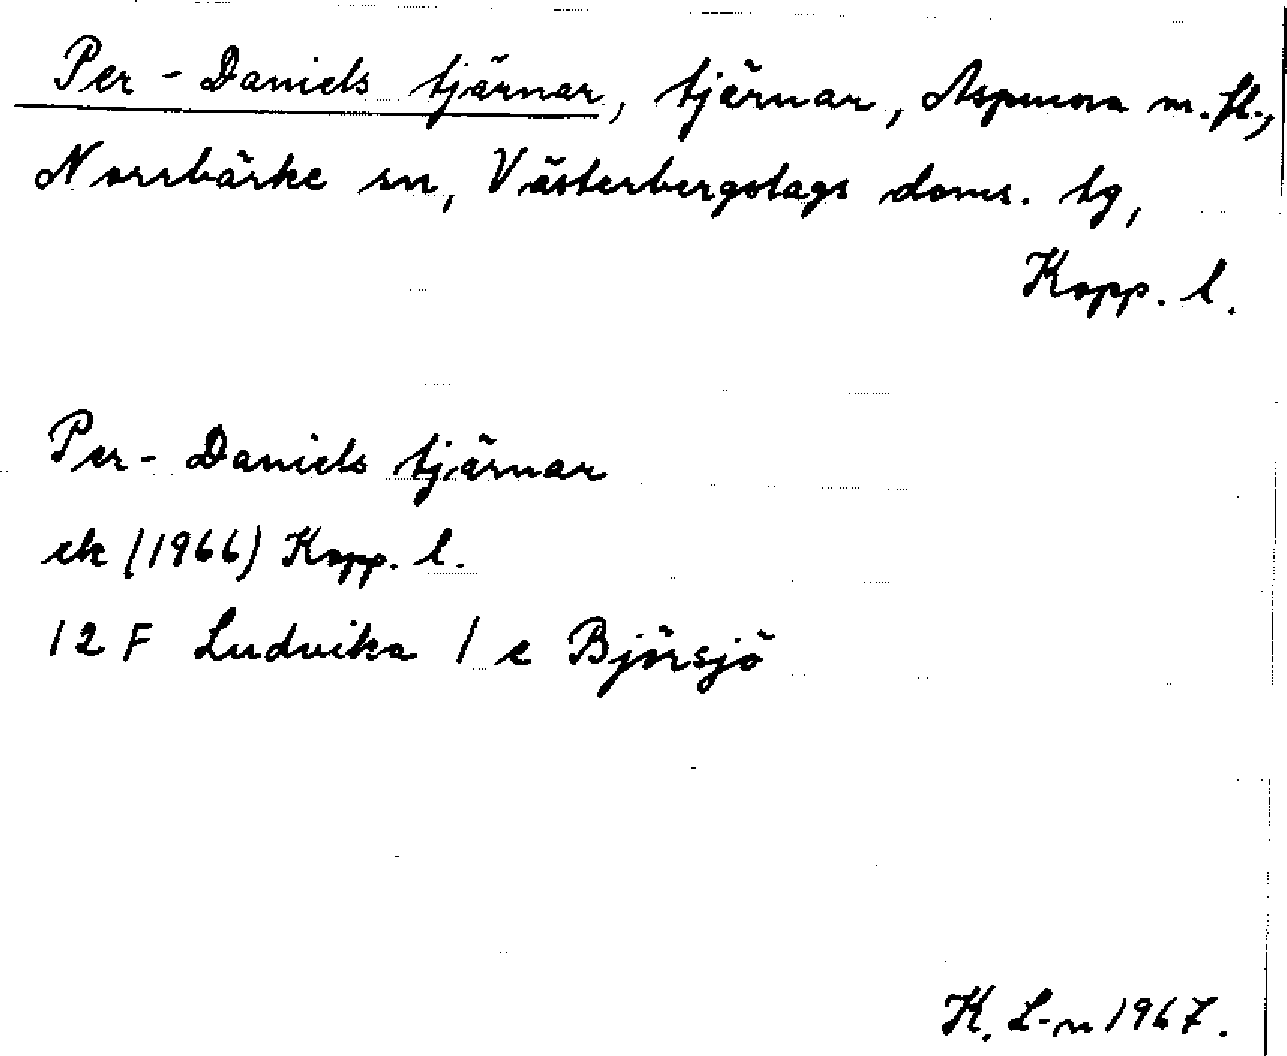 Per-Daniels tjärnar, tjärnar, Aspmora m.fl.,
Norrbärke sn, Västerbergslags doms. tg,
Kopp. l.
Per-Daniels tjärnar
ek (1966) Kopp. l.
12 F Ludvika / e Björsjö
K. L-n 1967.